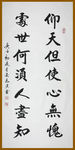 仰天但使心無愧
處世何須人盡知